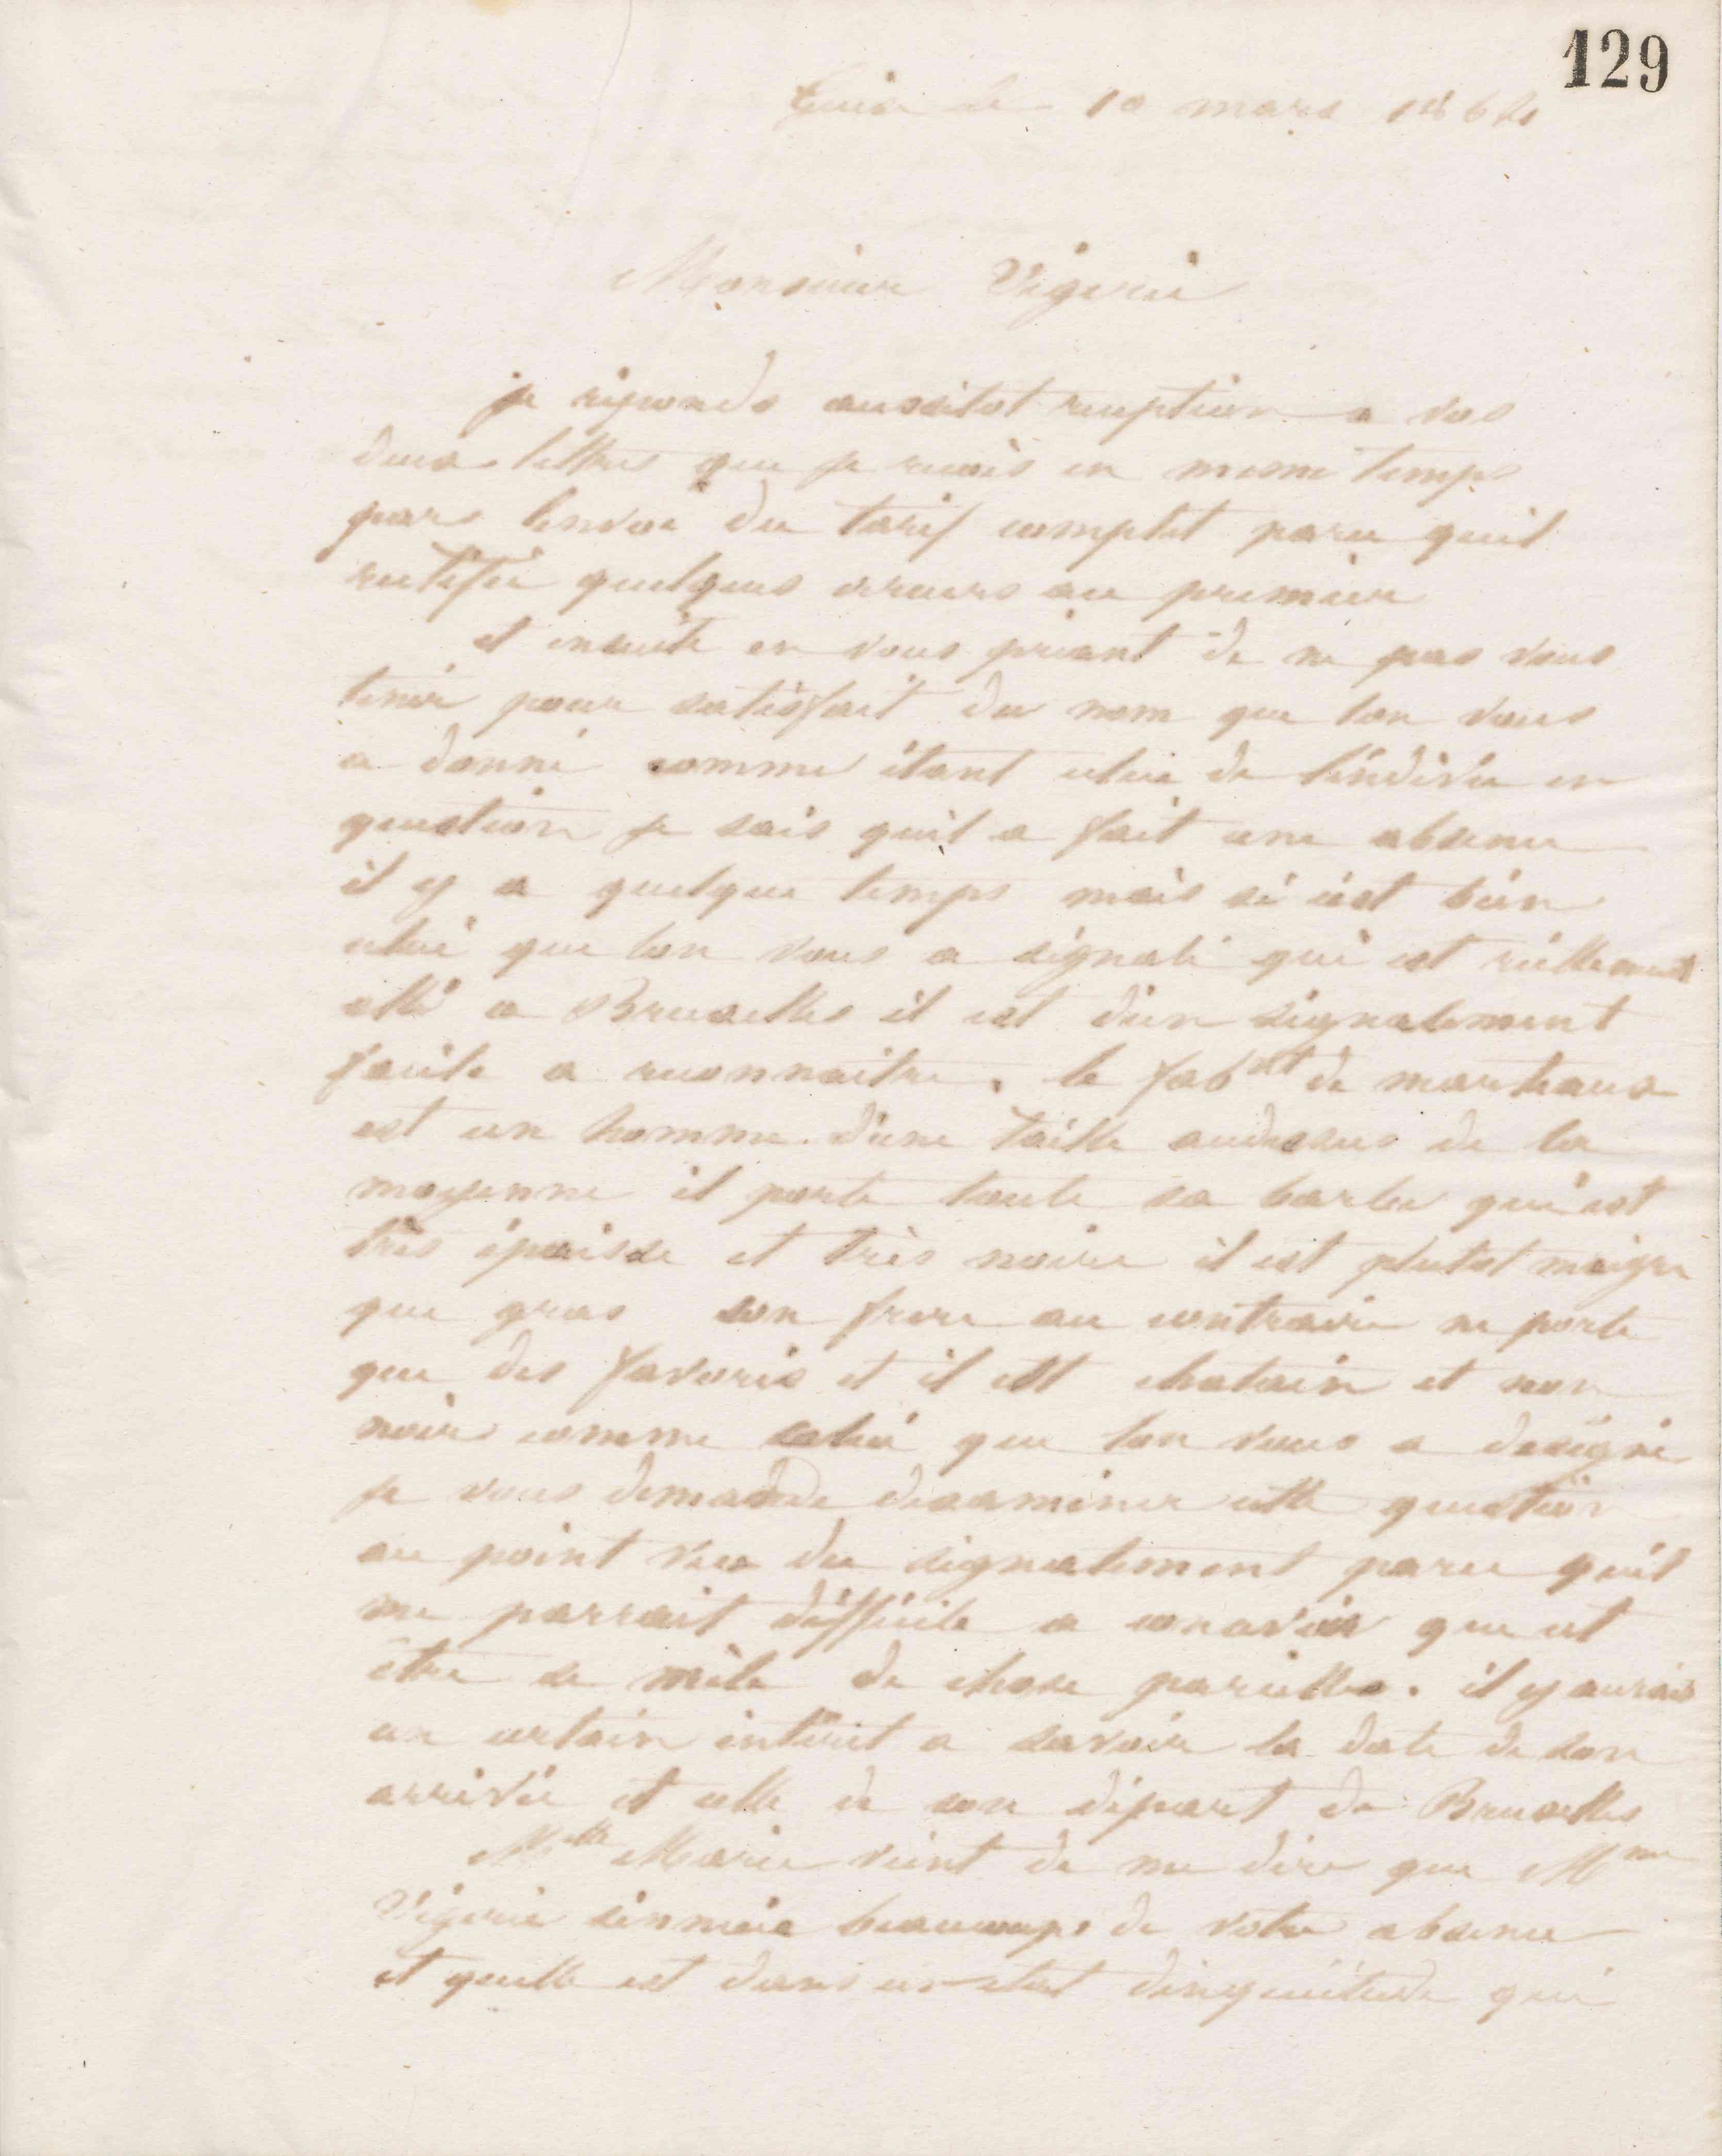 129
Guise le 10 mars 1864
Monsieur Vigerie
je reponds aussitot reception a vos
deux lettres que je reçois en meme temps
pars lenvoi du tarif complet parce quil
rectifie quelques erreurs au premier
et ensuite en vous priant de ne pas vous
tenir pour satisfait du nom que lon vous
a donné comme étant celui de l'individu en
question je sais quil a fait une absence
il y a quelque temps mais si cest bien
celui que lon vous a signalé qui est réellement
allé a Bruxelles il est d'un signalement
facile a reconnaitre. le fabt de marteaux
est un homme d'une taille audessus de la
moyenne il porte toute sa barbe qui est
très épaisse et très noire il est plutot maigre
que gras son frere au contraire ne porte
que des favoris et il est chatain et non
noir comme celui que lon vous a designé
je vous demande dexaminer cette question
au point vue du signalement parce quil
me parrait difficile a concevoir que cet
être se mèle de chose pareilles. il y aurais
un certain intéret a savoir la date de son
arrivée et celle de son départ de Bruxelles
Melle Marie vient de me dire que Mme
Vigerie sennuie beaucoups de votre absence
et quelle est dans un etat dinquiétude qui